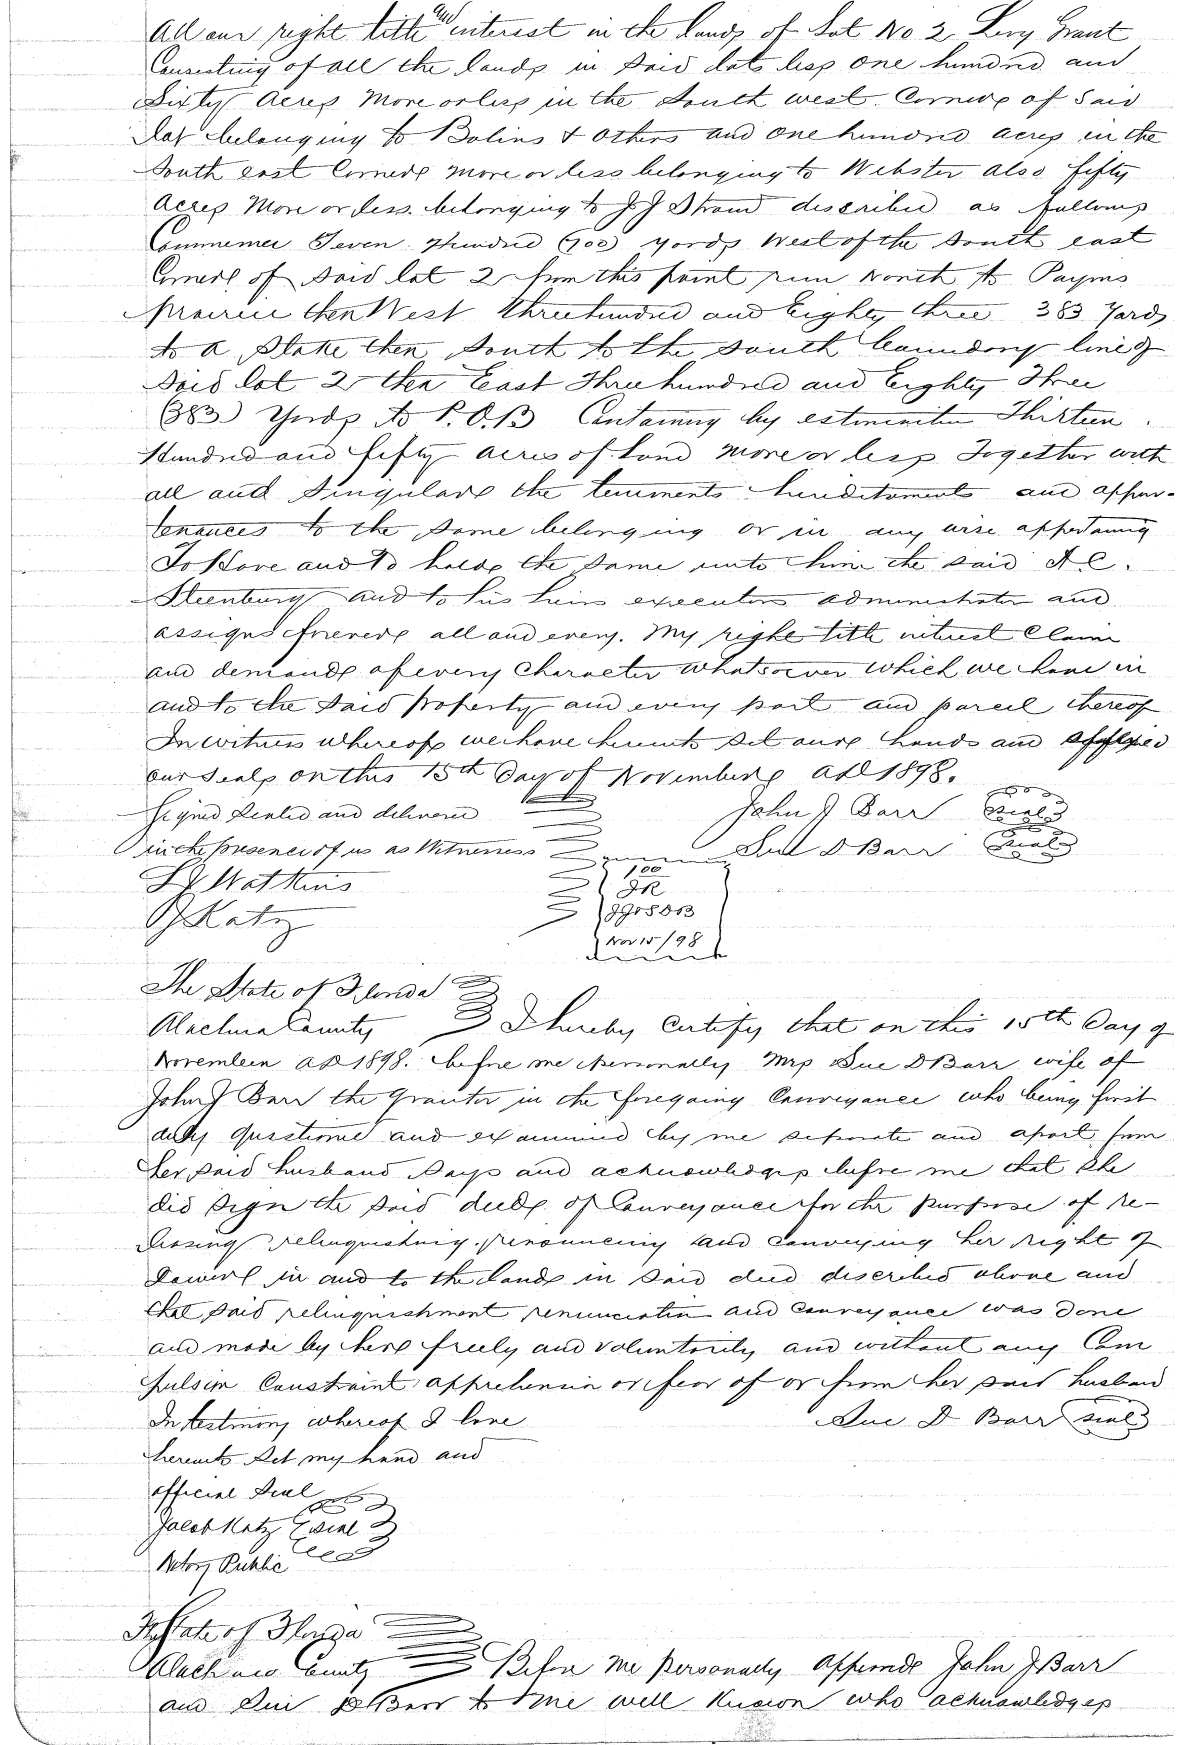 All our right title and interest in the lands of Lot No 2 Levy Grant
Consisting of all the lands in said lot less one hundred and
Sixty Acres More or less in the South west Corner of Said
Lot belonging to Bolins & others and one hundred acres in the
South east Corner more or less belonging to Webster also fifty
Acres More or less belonging to J J Strand described as follows
Commence Seven Hundred (700) yards West of the south east
Corner of said lot 2 from this point run North to Payns
prairie then West three hundred and Eighty three 383 Yards
to a Stake then South to the south boundary line of
said lot 2 then East Three hundred and Eighty Three
(383) Yards to P.O.B Containing by estimation Thirteen
Hundred and fifty acres of Land more or less Together with
all and Singular the tenements hereditaments and appur-
tenances to the same belonging or in any wise appertaining
To Have and To hold the same unto him the said A C.
Steenburg and to his heirs executors administrator and
assigns forever all and every. My right title interest Claim
and demand of every Character whatsoever which we have in
and to the said property and every part and parcel thereof
In witness whereof we have hereunto set our hands and affixed
our seals on this 15th Day of November AD 1898.
Signed Sealed and delivered John J Barr Seal
in the presence of us as Witnesses Sue D Barr Seal
L J Watkins 1 00
J Katz IR
JJ05DB
Nov 15/98
The State of Florida
Alachua County I hereby certify that on this 15th Day of
November AD 1898. before me personally Mrs Sue D Barr wife of
John J Barr the Grantor in the foregoing Conveyance who being first
duly questioned and examined by me seperate and apart from
her said husband says and acknowledges before me that she
did sign the said deed of Conveyance for the purpose of re-
leasing relinquishing renouncing and conveying her right of
Dower in and to the lands in said deed described above and
that said relinquishment renunciation and conveyance was done
and made by her freely and voluntarily and without any Com
pulsion Constraint apprehension or fear of or from her said husband
In testimony whereof I have Sue D Barr seal
hereunto set my hand and
official Seal
Jacob Katz Seal
Notory Public
The State of Florida
Alachua County Before me personally appeared John J Barr
and Sue D Barr to me well known who acknowledges